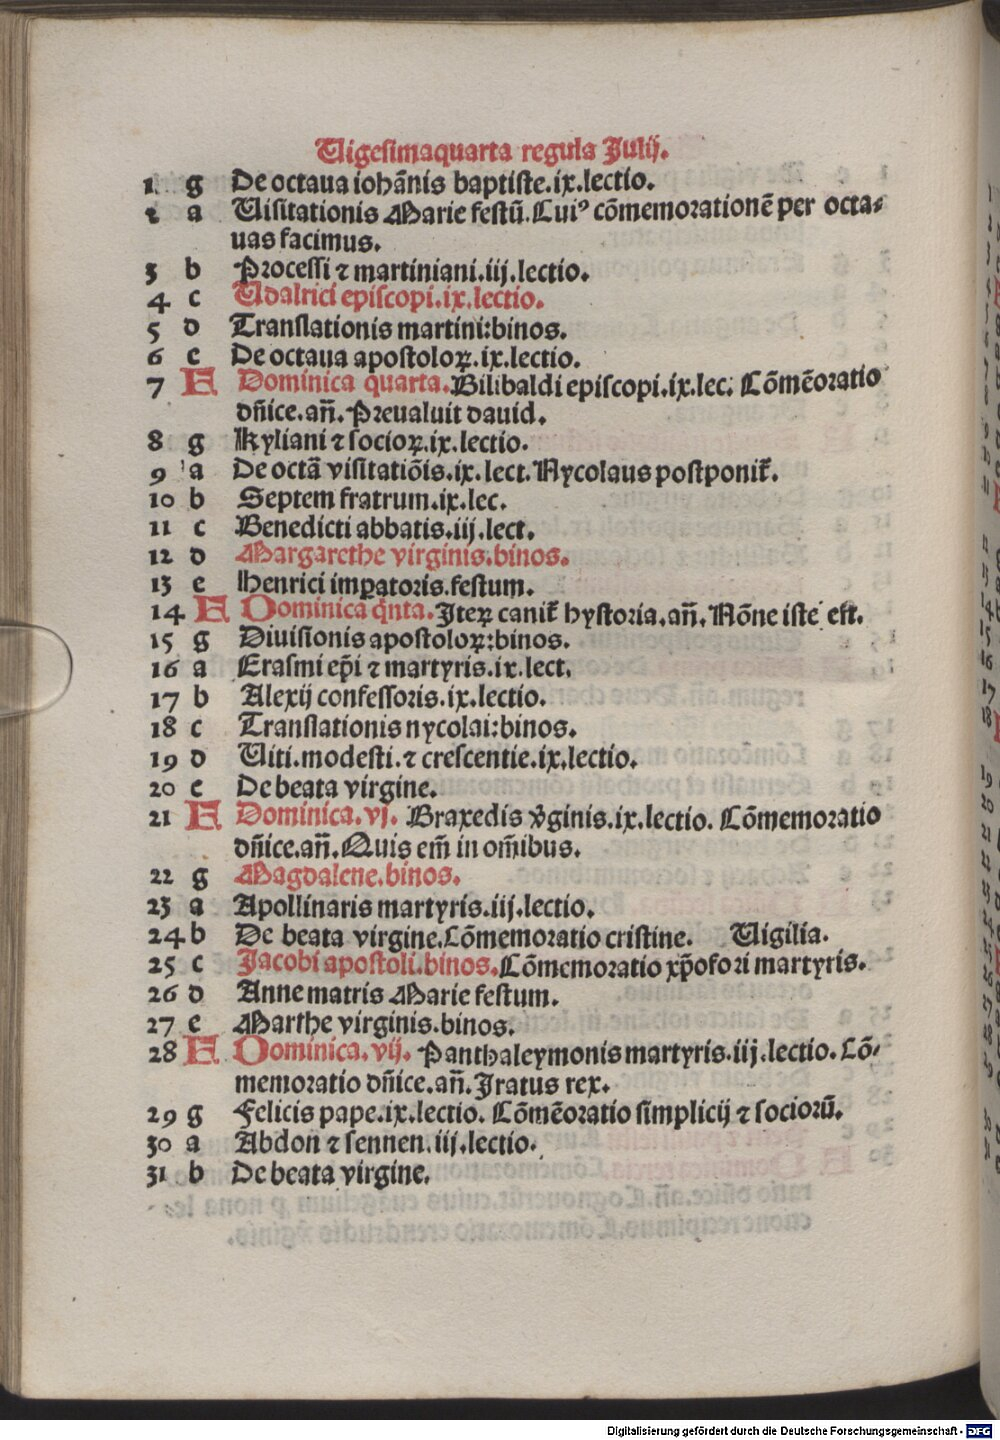 Uigesimaquarta regula Julij.
1 g De octaua iohānis baptiste.ix.lectio.
2 a Uisitationis Marie festū.Cuiꝰ cōmemorationē per octa-
uas facimus.
3 b Processi ⁊ martiniani.iij.lectio.
4 c Udalrici episcopi.ix.lectio.
5 d Translationis martini:binos.
6 e De octaua apostoloꝝ.ix.lectio.
7 F Dominica quarta.Bilibaldi episcopi.ix.lec. Cōmēoratio
dn̄ice.an̄.Preualuit dauid.
8 g Kyliani ⁊ socioꝝ.ix.lectio.
9 a De octā visitatiōis.ix.lect.Nycolaus postponit̃.
10 b Septem fratrum.ix.lec.
11 c Benedicti abbatis.iij.lect.
12 d Margarethe virginis.binos.
13 e Henrici imꝑatoris.festum.
14 F Dominica q̇nta.Iteꝝ canit̃ hystoria.an̄.Nōne iste est.
15 g Diuisionis apostoloꝝ:binos.
16 a Erasmi ep̄i ⁊ martyris.ix.lect.
17 b Alexij confessoris.ix.lectio.
18 c Translationis nycolai:binos.
19 d Uiti.modesti.⁊ crescentie.ix.lectio.
20 e De beata virgine.
21 F Dominica.vj. Braxedis v̓ginis.ix.lectio. Cōmemoratio
dn̄ice.an̄.Quis em̄ in om̄ibus.
22 g Magdalene.binos.
23 a Apollinaris martyris.iij.lectio.
24 b De beata virgine.Cōmemoratio cristine. Uigilia.
25 c Jacobi apostoli.binos.Cōmemoratio xp̄ofori martyris.
26 d Anne matris Marie festum.
27 e Marthe virginis.binos.
28 F Dominica.vij. Panthaleymonis martyris.iij.lectio. Cō-
memoratio dn̄ice.an̄.Iratus rex.
29 g Felicis pape.ix.lectio. Cōmēoratio simplicij ⁊ sociorū.
30 a Abdon ⁊ sennen.iij.lectio.
31 b De beata virgine.
Digitalisierung gefördert durch die Deutsche Forschungsgemeinschaft - DFG